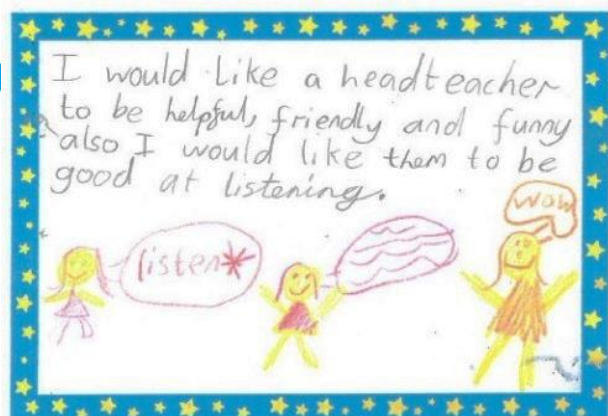 I would like a headteacher
to be helpful, friendly and funny
also I would like them to be
good at listening.
wow
listen*